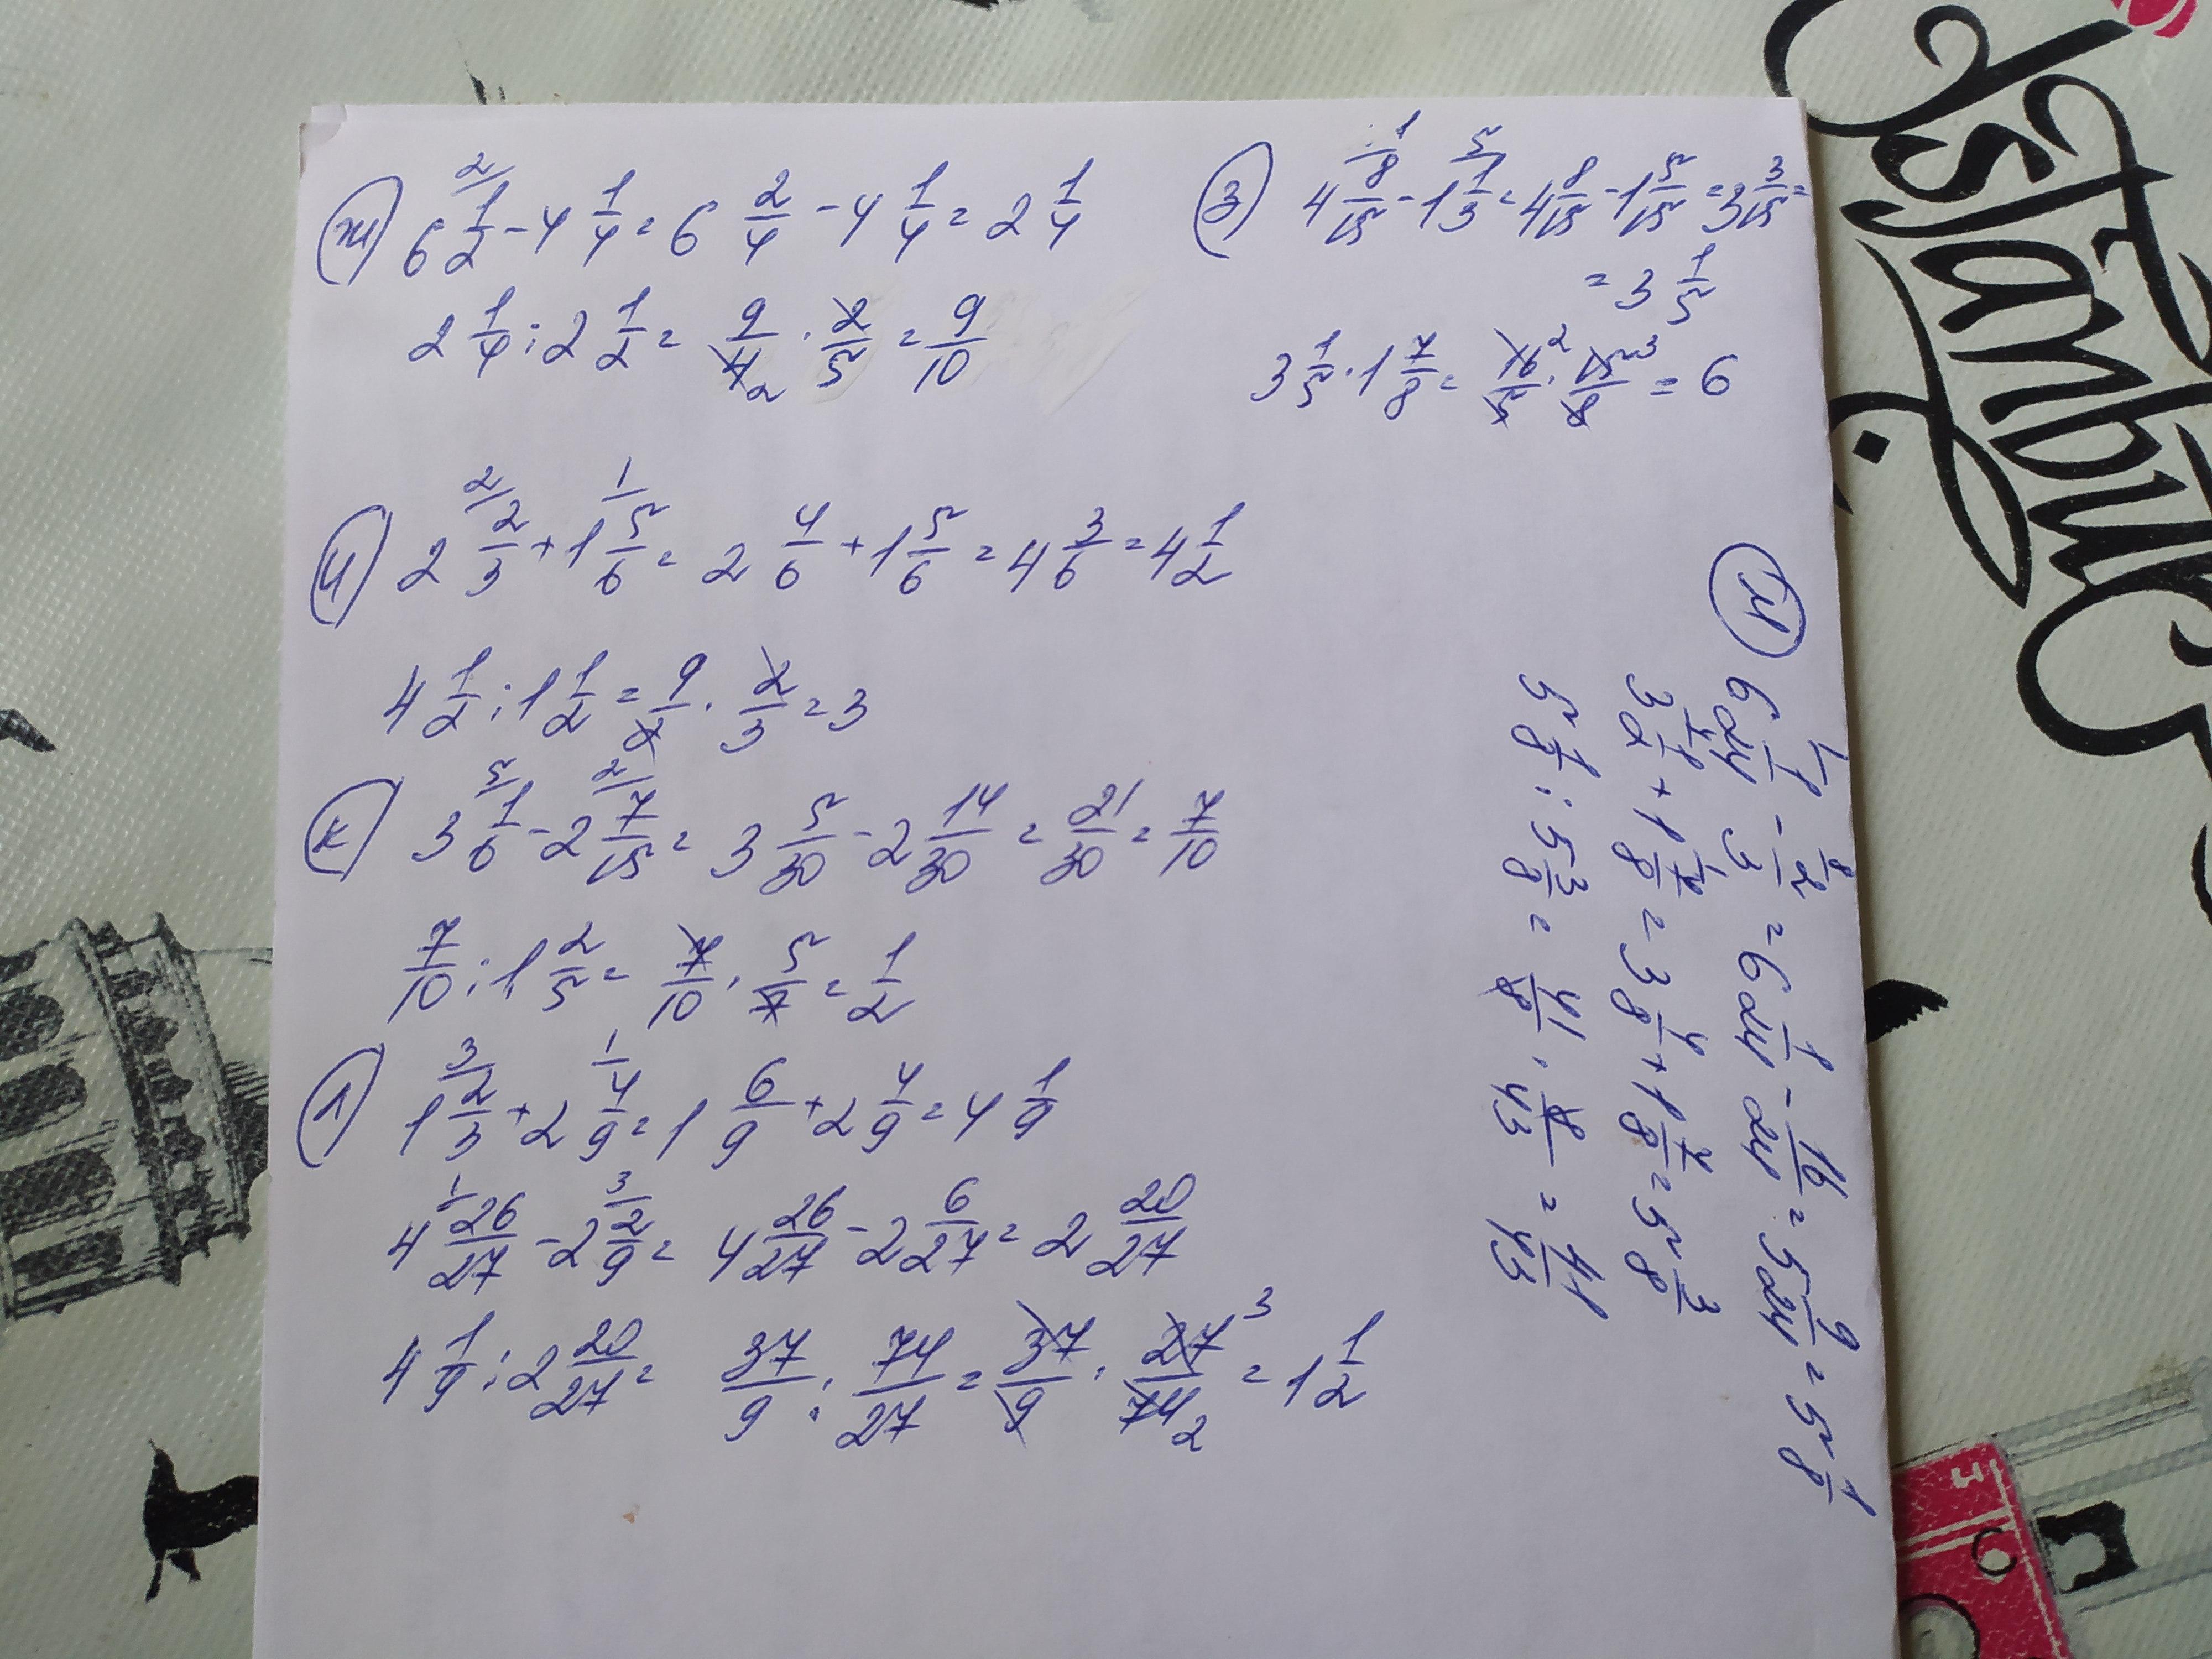 ж) 6 1/2 - 4 1/4 = 6 2/4 - 4 1/4 = 2 1/4
2 1/4 : 2 1/2 = 9/4 · 2/5 = 9/10
з) 4 8/15 - 1 1/3 = 4 8/15 - 1 5/15 = 3 3/15 =
= 3 1/5
3 1/5 · 1 7/8 = 16/5 · 15/8 = 6
и) 2 2/3 + 1 5/6 = 2 4/6 + 1 5/6 = 4 3/6 = 4 1/2
4 1/2 : 1 1/2 = 9/2 · 2/3 = 3
к) 3 1/6 - 2 7/15 = 3 5/30 - 2 14/30 = 21/30 = 7/10
7/10 : 1 2/5 = 7/10 · 5/7 = 1/2
л) 1 2/3 + 2 4/9 = 1 6/9 + 2 4/9 = 4 1/9
4 26/27 - 2 2/9 = 4 26/27 - 2 6/27 = 2 20/27
4 1/9 : 2 20/27 = 37/9 : 74/27 = 37/9 · 27/74 = 1 1/2
м) 6 1/24 - 2/3 = 6 1/24 - 16/24 = 5 9/24 = 5 1/8
3 1/2 + 1 7/8 = 3 4/8 + 1 7/8 = 5 3/8
5 1/8 : 5 3/8 = 41/8 · 8/43 = 41/43
istanbul